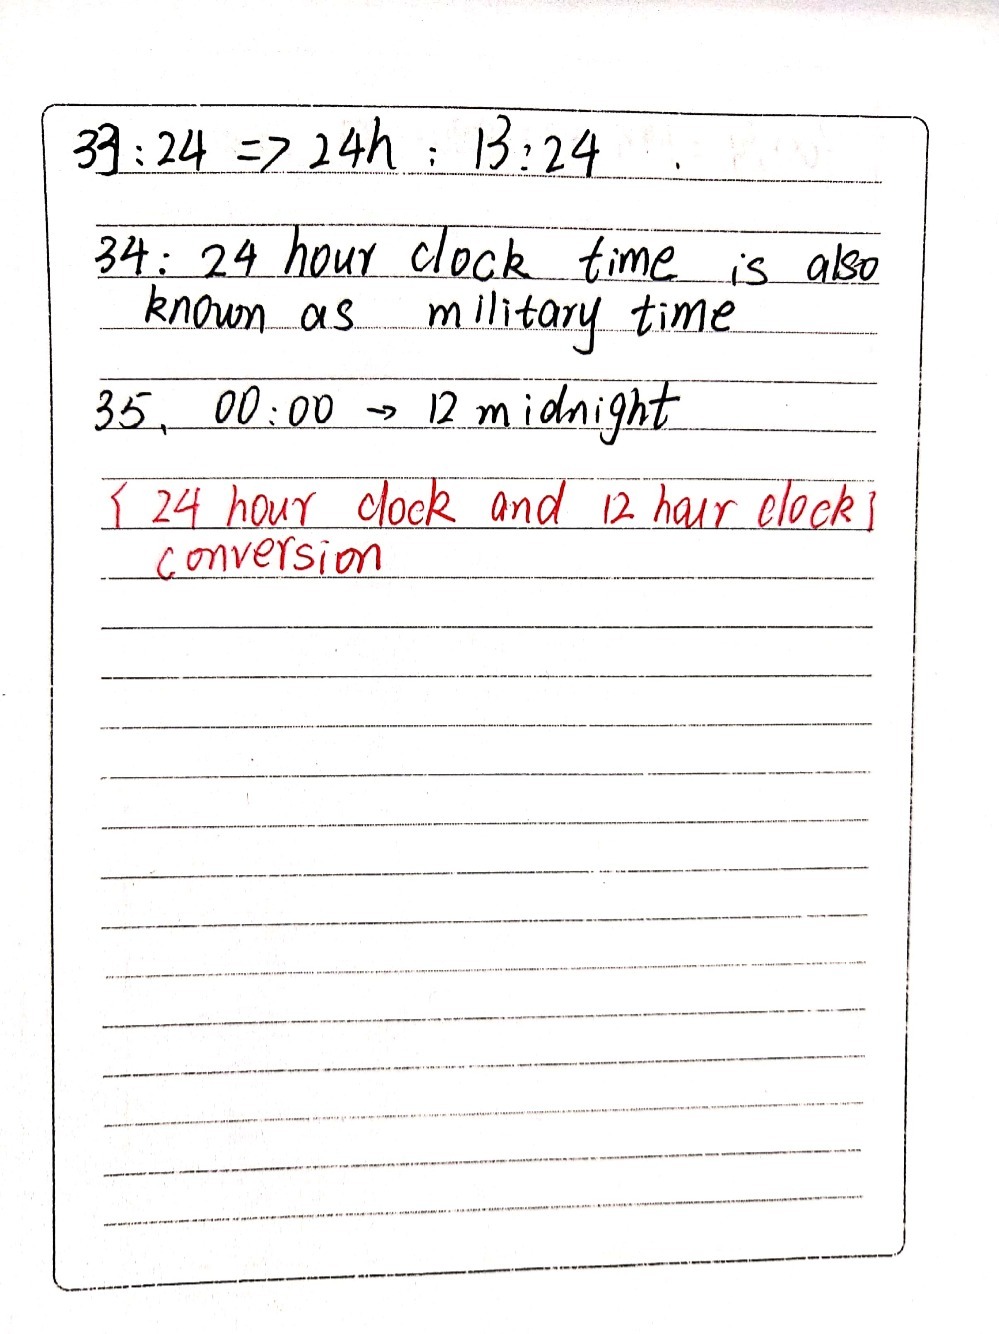 33:24 => 24h : 13:24 .
34: 24 hour clock time is also
known as military time
35. 00:00 → 12 midnight
{ 24 hour clock and 12 hour clock}
conversion